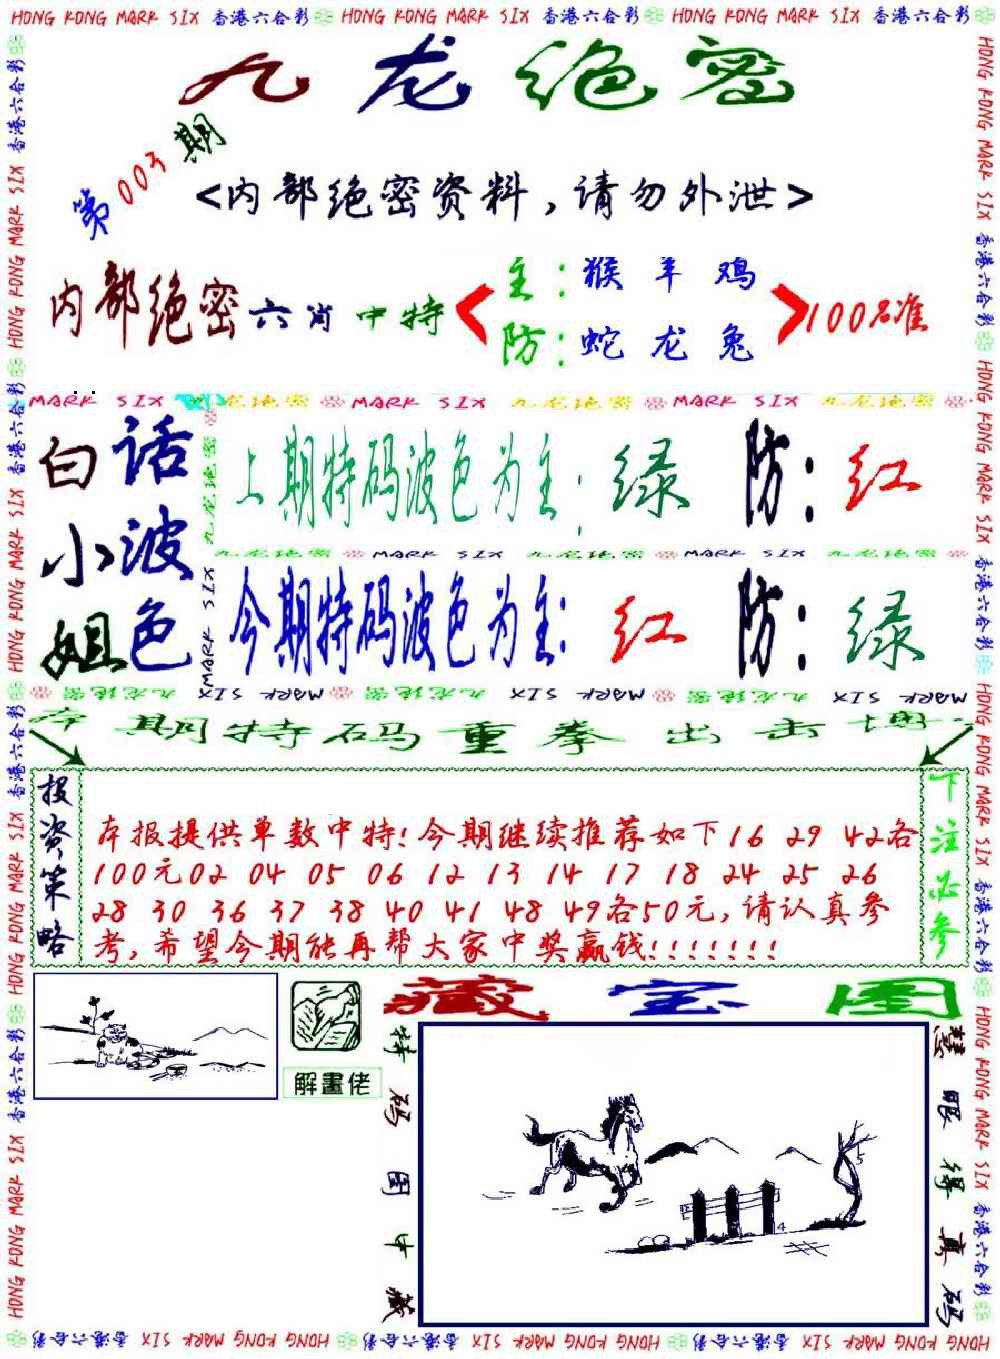 HONG KONG MARK SIX 香港六合彩 HONG KONG MARK SIX 香港六合彩 HONG KONG MARK SIX 香港六合彩
九龙绝密
第003期
<内部绝密资料，请勿外泄>
内部绝密六肖中特
主：猴 羊 鸡
防：蛇 龙 兔
100%准
MARK SIX 九龙绝密 MARK SIX 九龙绝密 MARK SIX 九龙绝密
白小姐
话波色
上期特码波色为主：绿 防：红
九龙绝密 MARK SIX 九龙绝密 MARK SIX 九龙绝密
今期特码波色为主：红 防：绿
MARK SIX 九龙绝密 MARK SIX 九龙绝密 MARK SIX 九龙绝密
本期特码重拳出击
投资策略
本报提供单数中特！今期继续推荐如下16 29 42各
100元02 04 05 06 12 13 14 17 18 24 25 26
28 30 36 37 38 40 41 48 49各50元，请认真参
考，希望今期能再帮大家中奖赢钱！！！！！！！
下注必参
解畫佬
藏宝图
特码图中藏
慧眼得真码
5
4
HONG KONG MARK SIX 香港六合彩 HONG KONG MARK SIX 香港六合彩 HONG KONG MARK SIX 香港六合彩